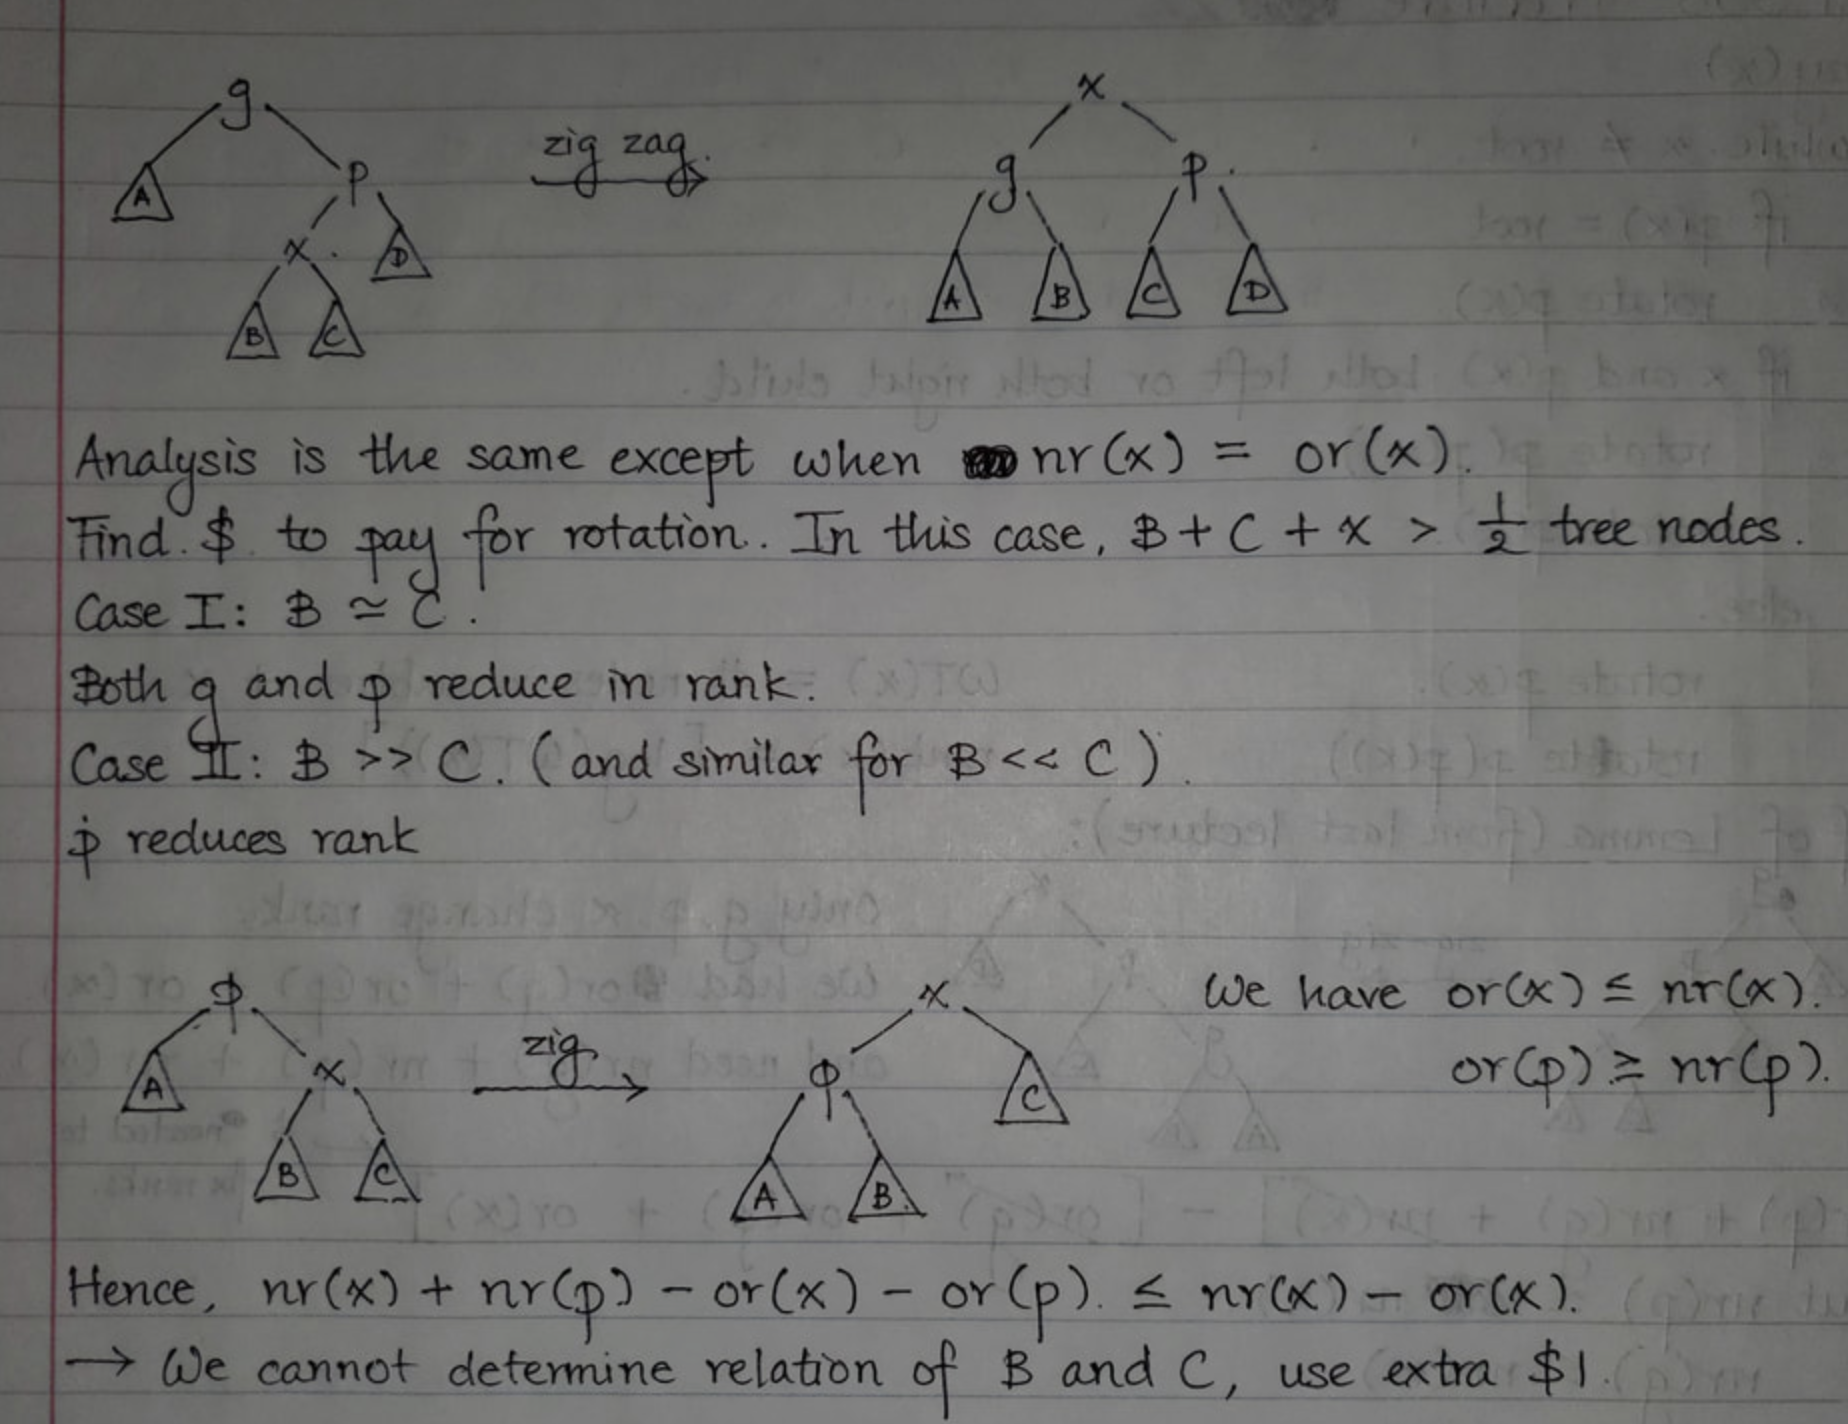 g
x
zig zag.
A
p
g
p
x
D
B
C
A
B
C
D
Analysis is the same except when nr(x) = or(x).
Find $ to pay for rotation. In this case, B + C + x > 1/2 tree nodes.
Case I: B ≃ C.
Both g and p reduce in rank.
Case II: B >> C. (and similar for B << C).
p reduces rank
p
x
We have or(x) ≤ nr(x).
zig
A
x
p
C
or(p) ≥ nr(p).
B
C
A
B
Hence, nr(x) + nr(p) - or(x) - or(p). ≤ nr(x) - or(x).
→ We cannot determine relation of B and C, use extra $1.